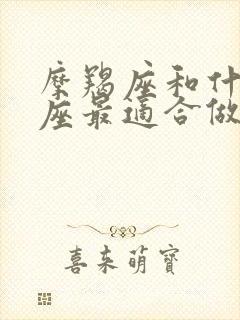 摩羯座和什
座最適合做
喜来萌寶